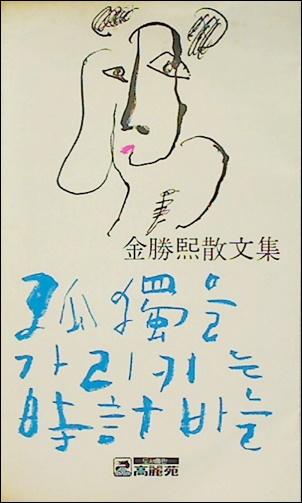 金勝熙散文集
孤獨을
가리키는
時計바늘
도서출판
高麗苑